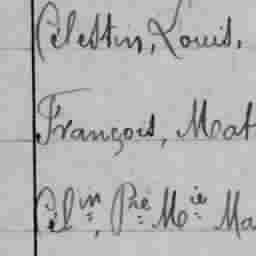 Célestin, Louis,
François, Mat
Cél^in, P^re M^ie Ma